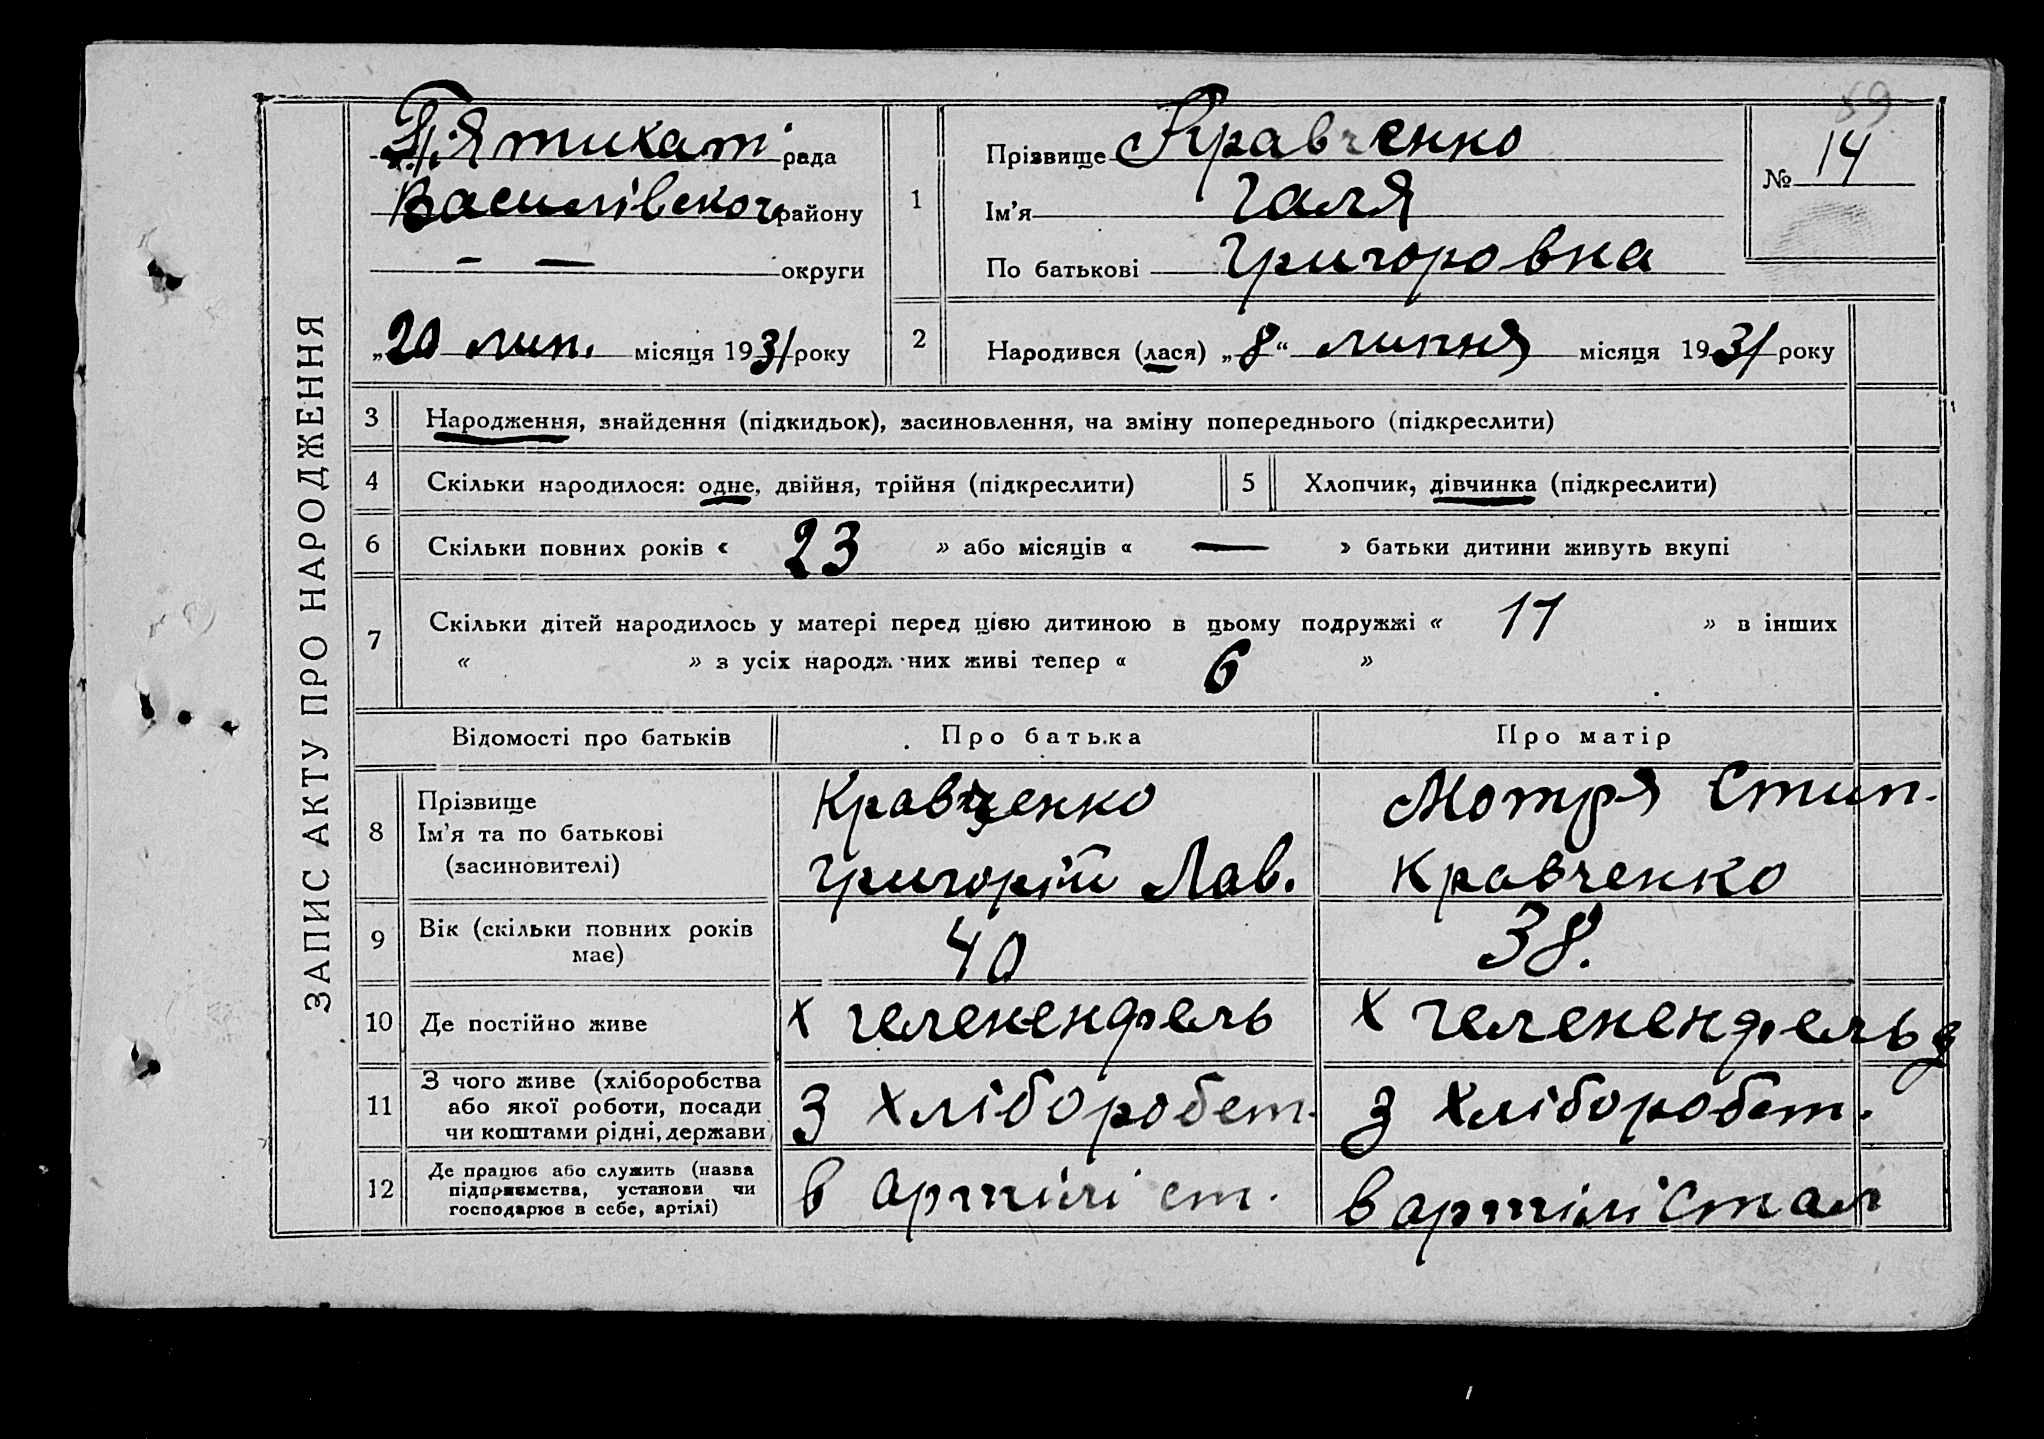 89
П'ятихат рада
Василівского району
— — округи
„20 лип. місяця 1931 року
1
Прізвище Кравченко
Ім'я Галя
По батькові Григоровна
№ 14
2
Народився (лася) „8“ липня місяця 1931 року
ЗАПИС АКТУ ПРО НАРОДЖЕННЯ
3 Народження, знайдення (підкидьок), засиновлення, на зміну попереднього (підкреслити)
4 Скільки народилося: одне, двійня, трійня (підкреслити)
5 Хлопчик, дівчинка (підкреслити)
6 Скільки повних років « 23 » або місяців « — » батьки дитини живуть вкупі
7 Скільки дітей народилось у матері перед цією дитиною в цьому подружжі « 11 » в інших
« » з усіх народж них живі тепер « 6 »
Відомості про батьків
Про батька
Про матір
8 Прізвище
Ім'я та по батькові
(засиновителі)
Кравченко
Григорій Лав.
Мотря Стип.
Кравченко
9 Вік (скільки повних років
має)
40
38.
10 Де постійно живе
х гелененфель
х геленендфельд
11 З чого живе (хліборобства
або якої роботи, посади
чи коштами рідні, держави
З хліборобст.
З хліборобст.
12 Де працює або служить (назва
підприємства, установи чи
господарює в себе, артілі)
в артілі ст.
в артілі Стал